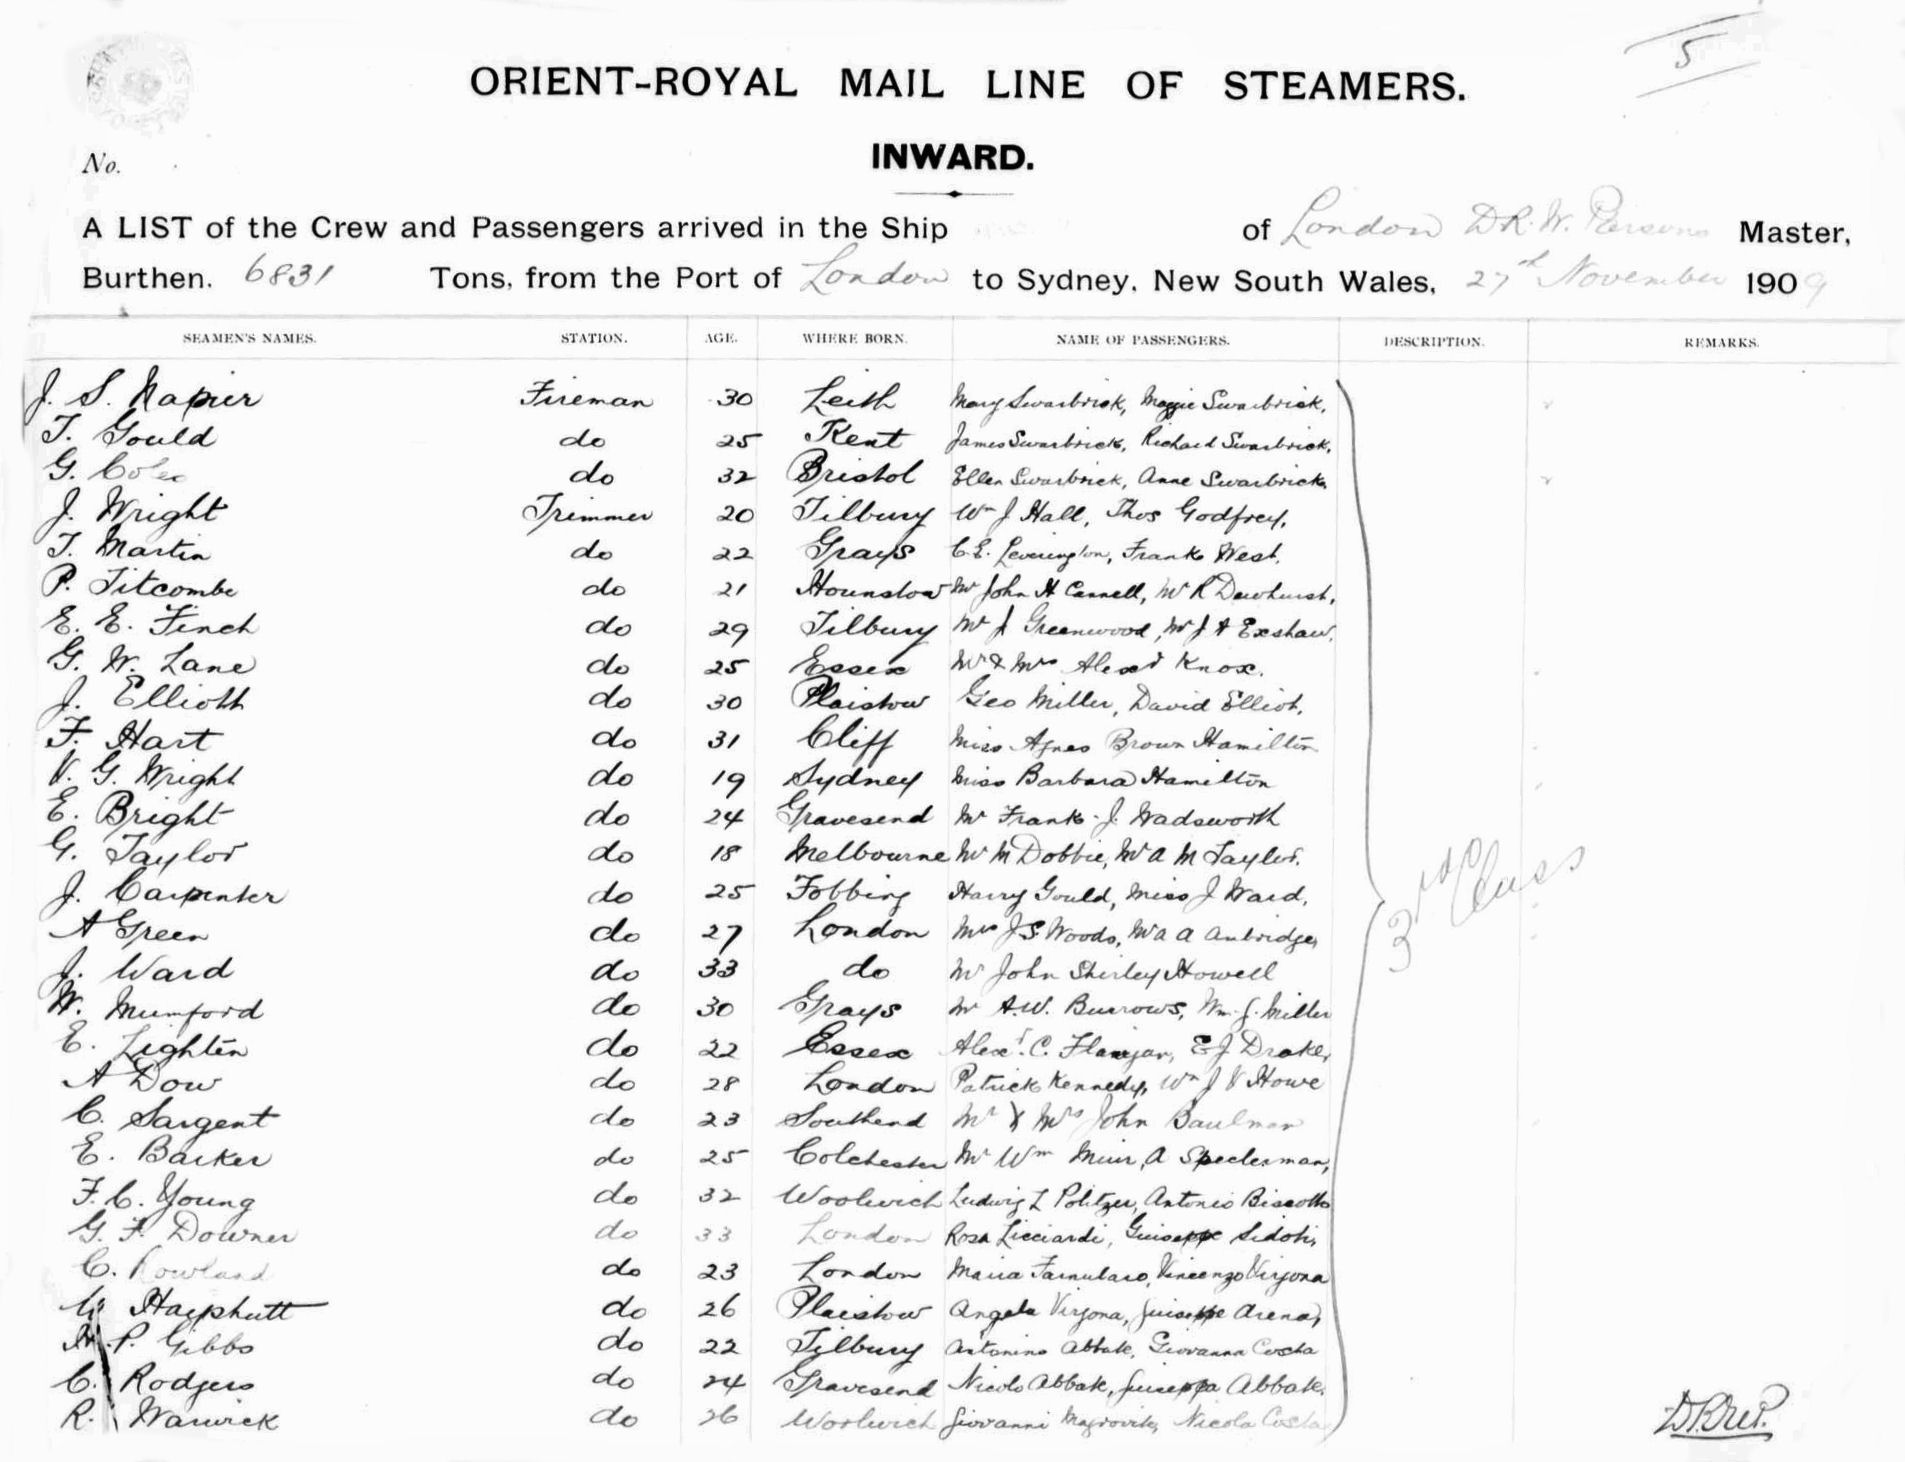 5
ORIENT-ROYAL MAIL LINE OF STEAMERS.
INWARD.
No.
A LIST of the Crew and Passengers arrived in the Ship of London D.R.W. Persons Master,
Burthen. 6831 Tons, from the Port of London to Sydney, New South Wales, 27th November 1909
SEAMEN'S NAMES. STATION. AGE. WHERE BORN. NAME OF PASSENGERS. DESCRIPTION. REMARKS.
J. S. Napier Fireman 30 Leith Mary Swarbrick, Maggie Swarbrick,
T. Gould do 25 Kent James Swarbrick, Richard Swarbrick,
G. Coles do 32 Bristol Ellen Swarbrick, Anne Swarbrick,
J. Wright Trimmer 20 Tilbury Wm J Hall, Thos Godfrey,
T. Martin do 22 Grays C.E. Leverington, Frank West,
P. Titcombe do 21 Hounslow Mr John H Cannell, Mr R Dewhurst,
E. E. Finch do 29 Tilbury Mr J Greenwood, Mr J A Exshaw,
G. W. Lane do 25 Essex Mr & Mrs Alexr Knox.
J. Elliott do 30 Plaistow Geo Miller, David Elliot,
F. Hart do 31 Cliff Miss Agnes Brown Hamilton
V. G. Wright do 19 Sydney Miss Barbara Hamilton
E. Bright do 24 Gravesend Mr Frank J. Wadsworth
G. Taylor do 18 Melbourne Mr M Dobbie, Mr A M Taylor.
J. Carpenter do 25 Fobbing Harry Gould, Miss J Ward,
A Green do 27 London Mrs J S Woods, Mr A A Anbridge,
J. Ward do 33 do Mr John Shirley Howell
W. Mumford do 30 Grays Mr A.W. Burrows, Wm. J. Miller
E. Lighten do 22 Essex Alexr. C. Flanigan, E J Drake,
A Dow do 28 London Patrick Kennedy, Wm J V Howe
C. Sargent do 23 Southend Mr & Mrs John Baulman
E. Barker do 25 Colchester Mr Wm Muir, A Speelerman,
F. C. Young do 32 Woolwich Ludwig L Politzer, Antonio Biscotto
G. F. Downer do 33 London Rosa Licciardi, Guiseppe Sidoti,
C. Rowland do 23 London Maria Famularo, Vincenzo Virgona
Hayphutt do 26 Plaistow Angela Virgona, Guiseppe Arena,
H. P. Gibbs do 22 Tilbury Antonino Abbate, Giovanna Costa
C. Rodgers do 24 Gravesend Nicolo Abbate, Guiseppa Abbate,
R. Warwick do 26 Woolwich Giovanni Nicola Costa
3rd Class